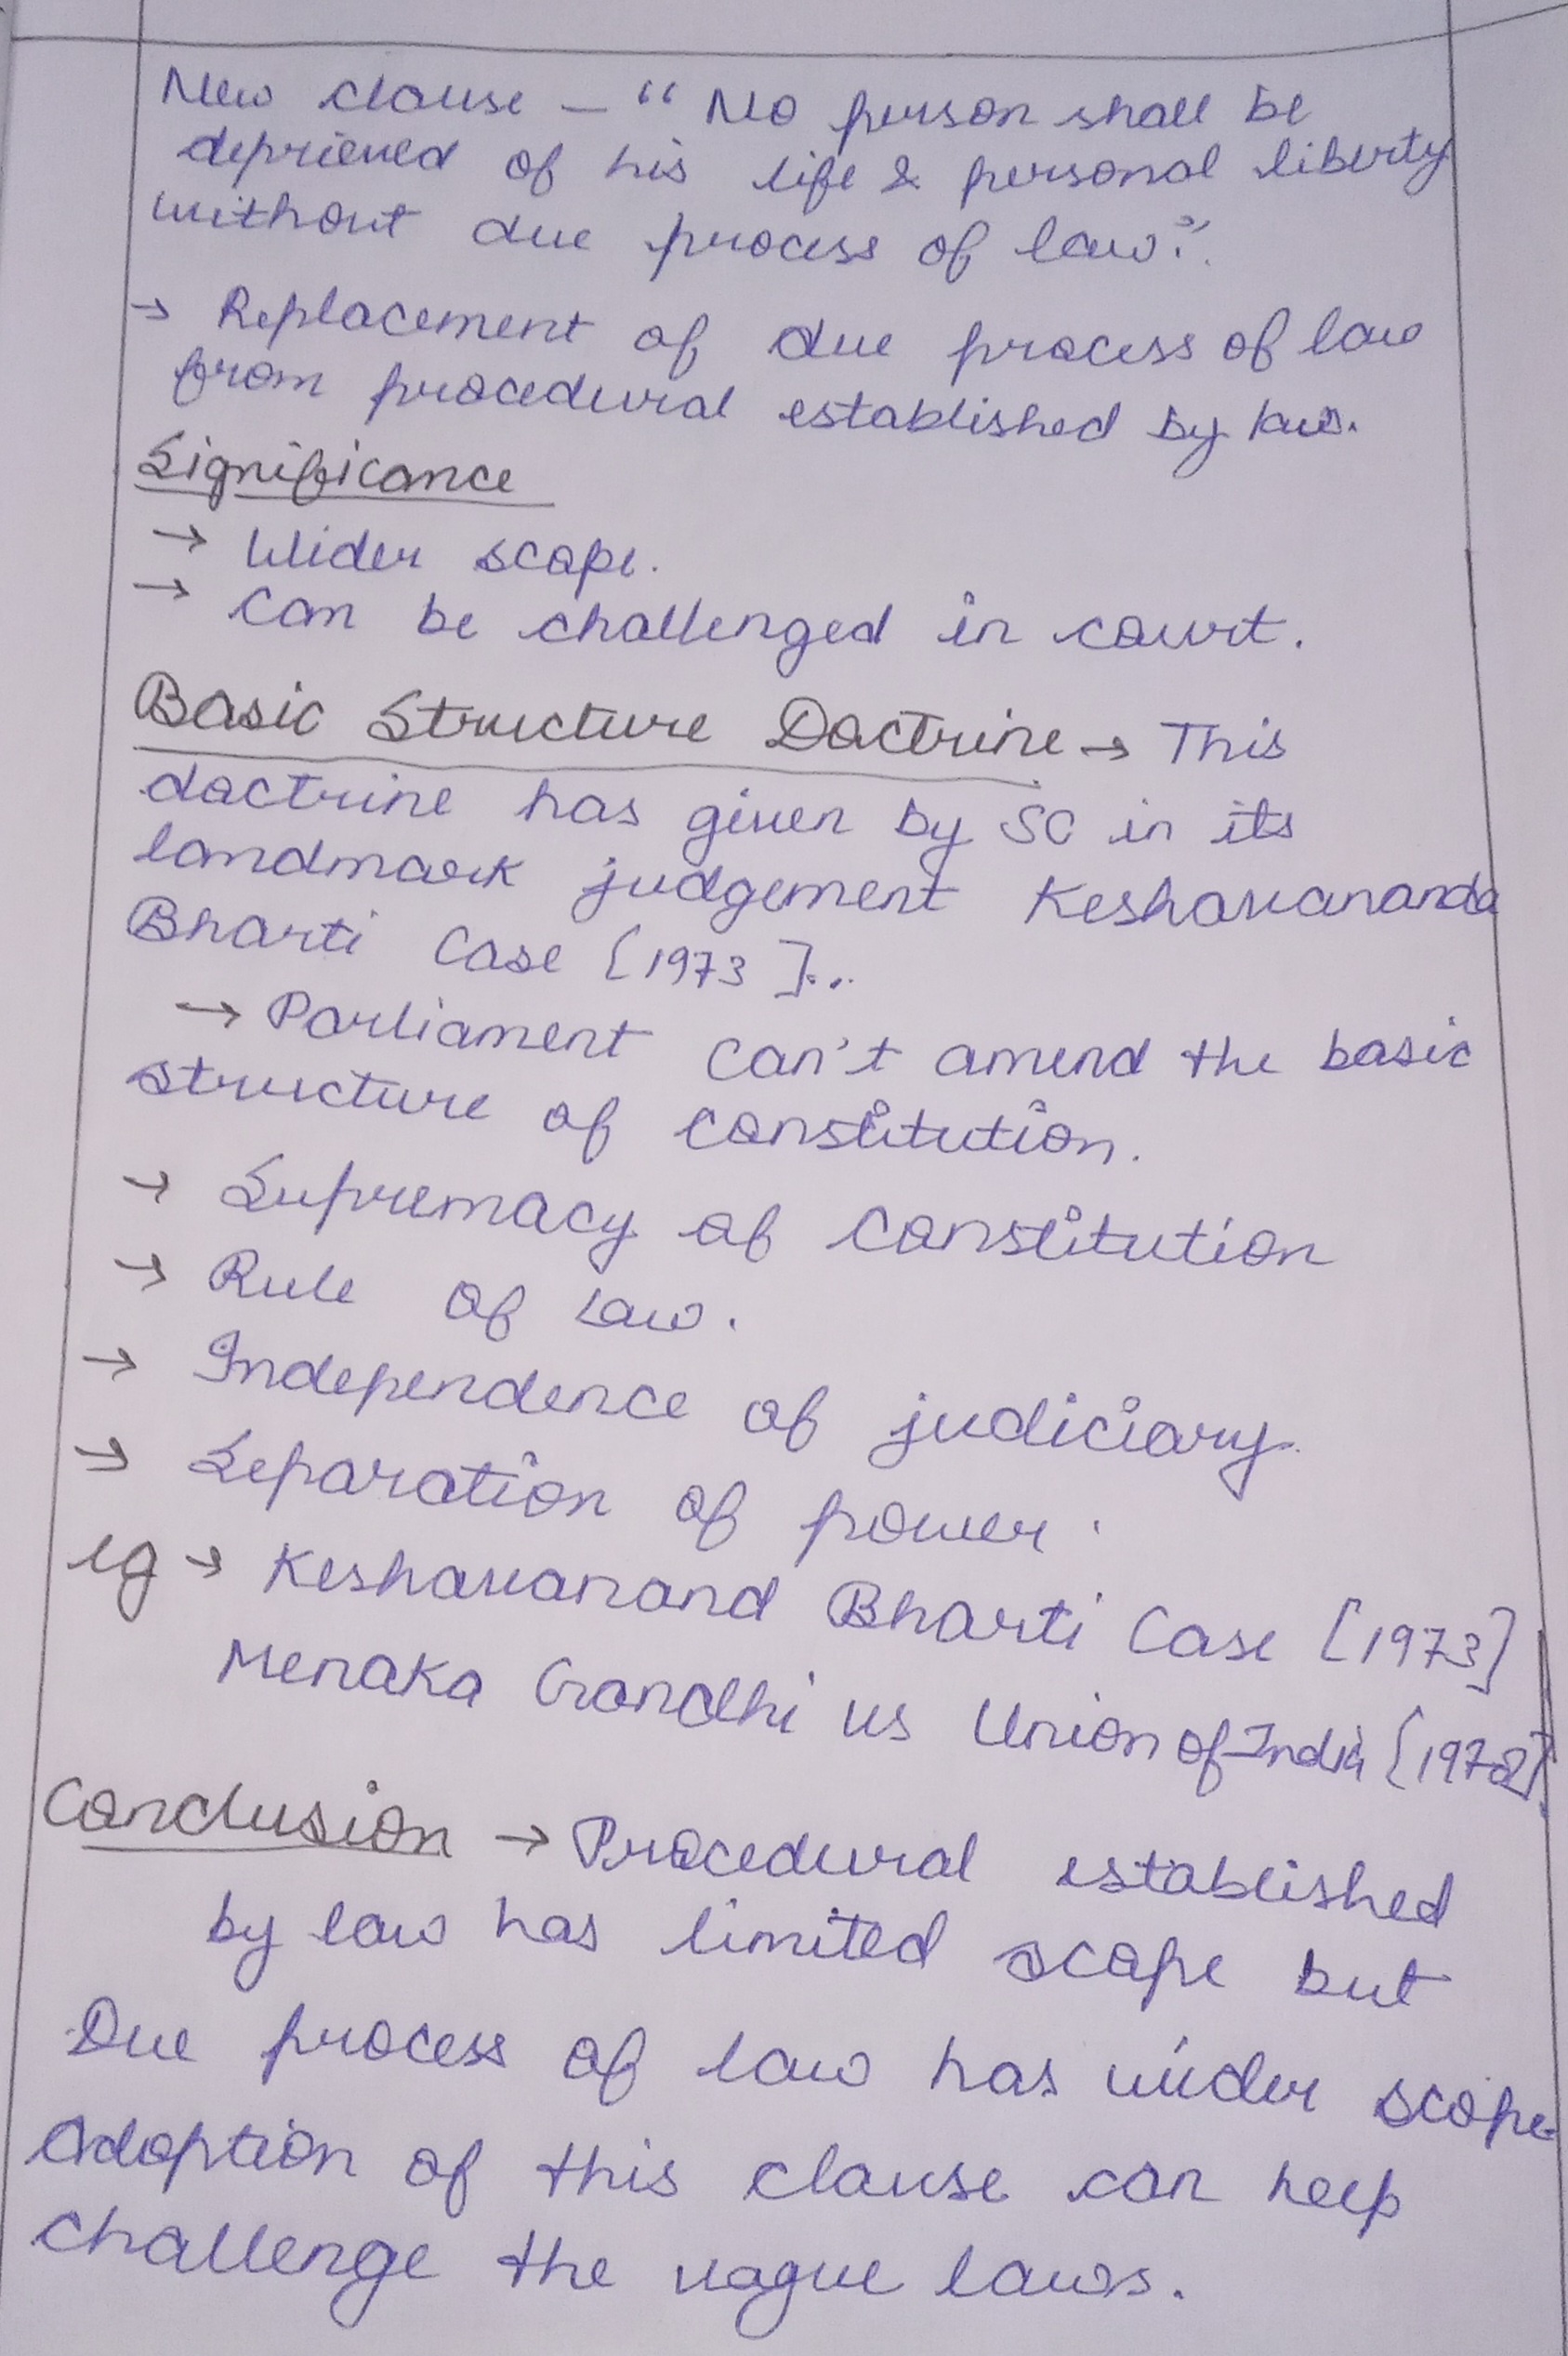 New clause – " No person shall be
deprieved of his life & personal liberty
without due process of law".
→ Replacement of due process of law
from procedural established by law.
Significance
→ Wider scope.
→ Can be challenged in court.
Basic Structure Doctrine → This
doctrine has given by SC in its
landmark judgement Keshavananda
Bharti Case [1973]..
→ Parliament can't amend the basic
structure of constitution.
→ Supremacy of Constitution
→ Rule of Law.
→ Independence of judiciary.
→ Separation of power.
eg → Keshavanand Bharti Case [1973]
Menaka Gandhi vs Union of India [1978].
Conclusion → Procedural established
by law has limited scope but
Due process of law has wider scope.
Adoption of this clause can help
challenge the vague laws.